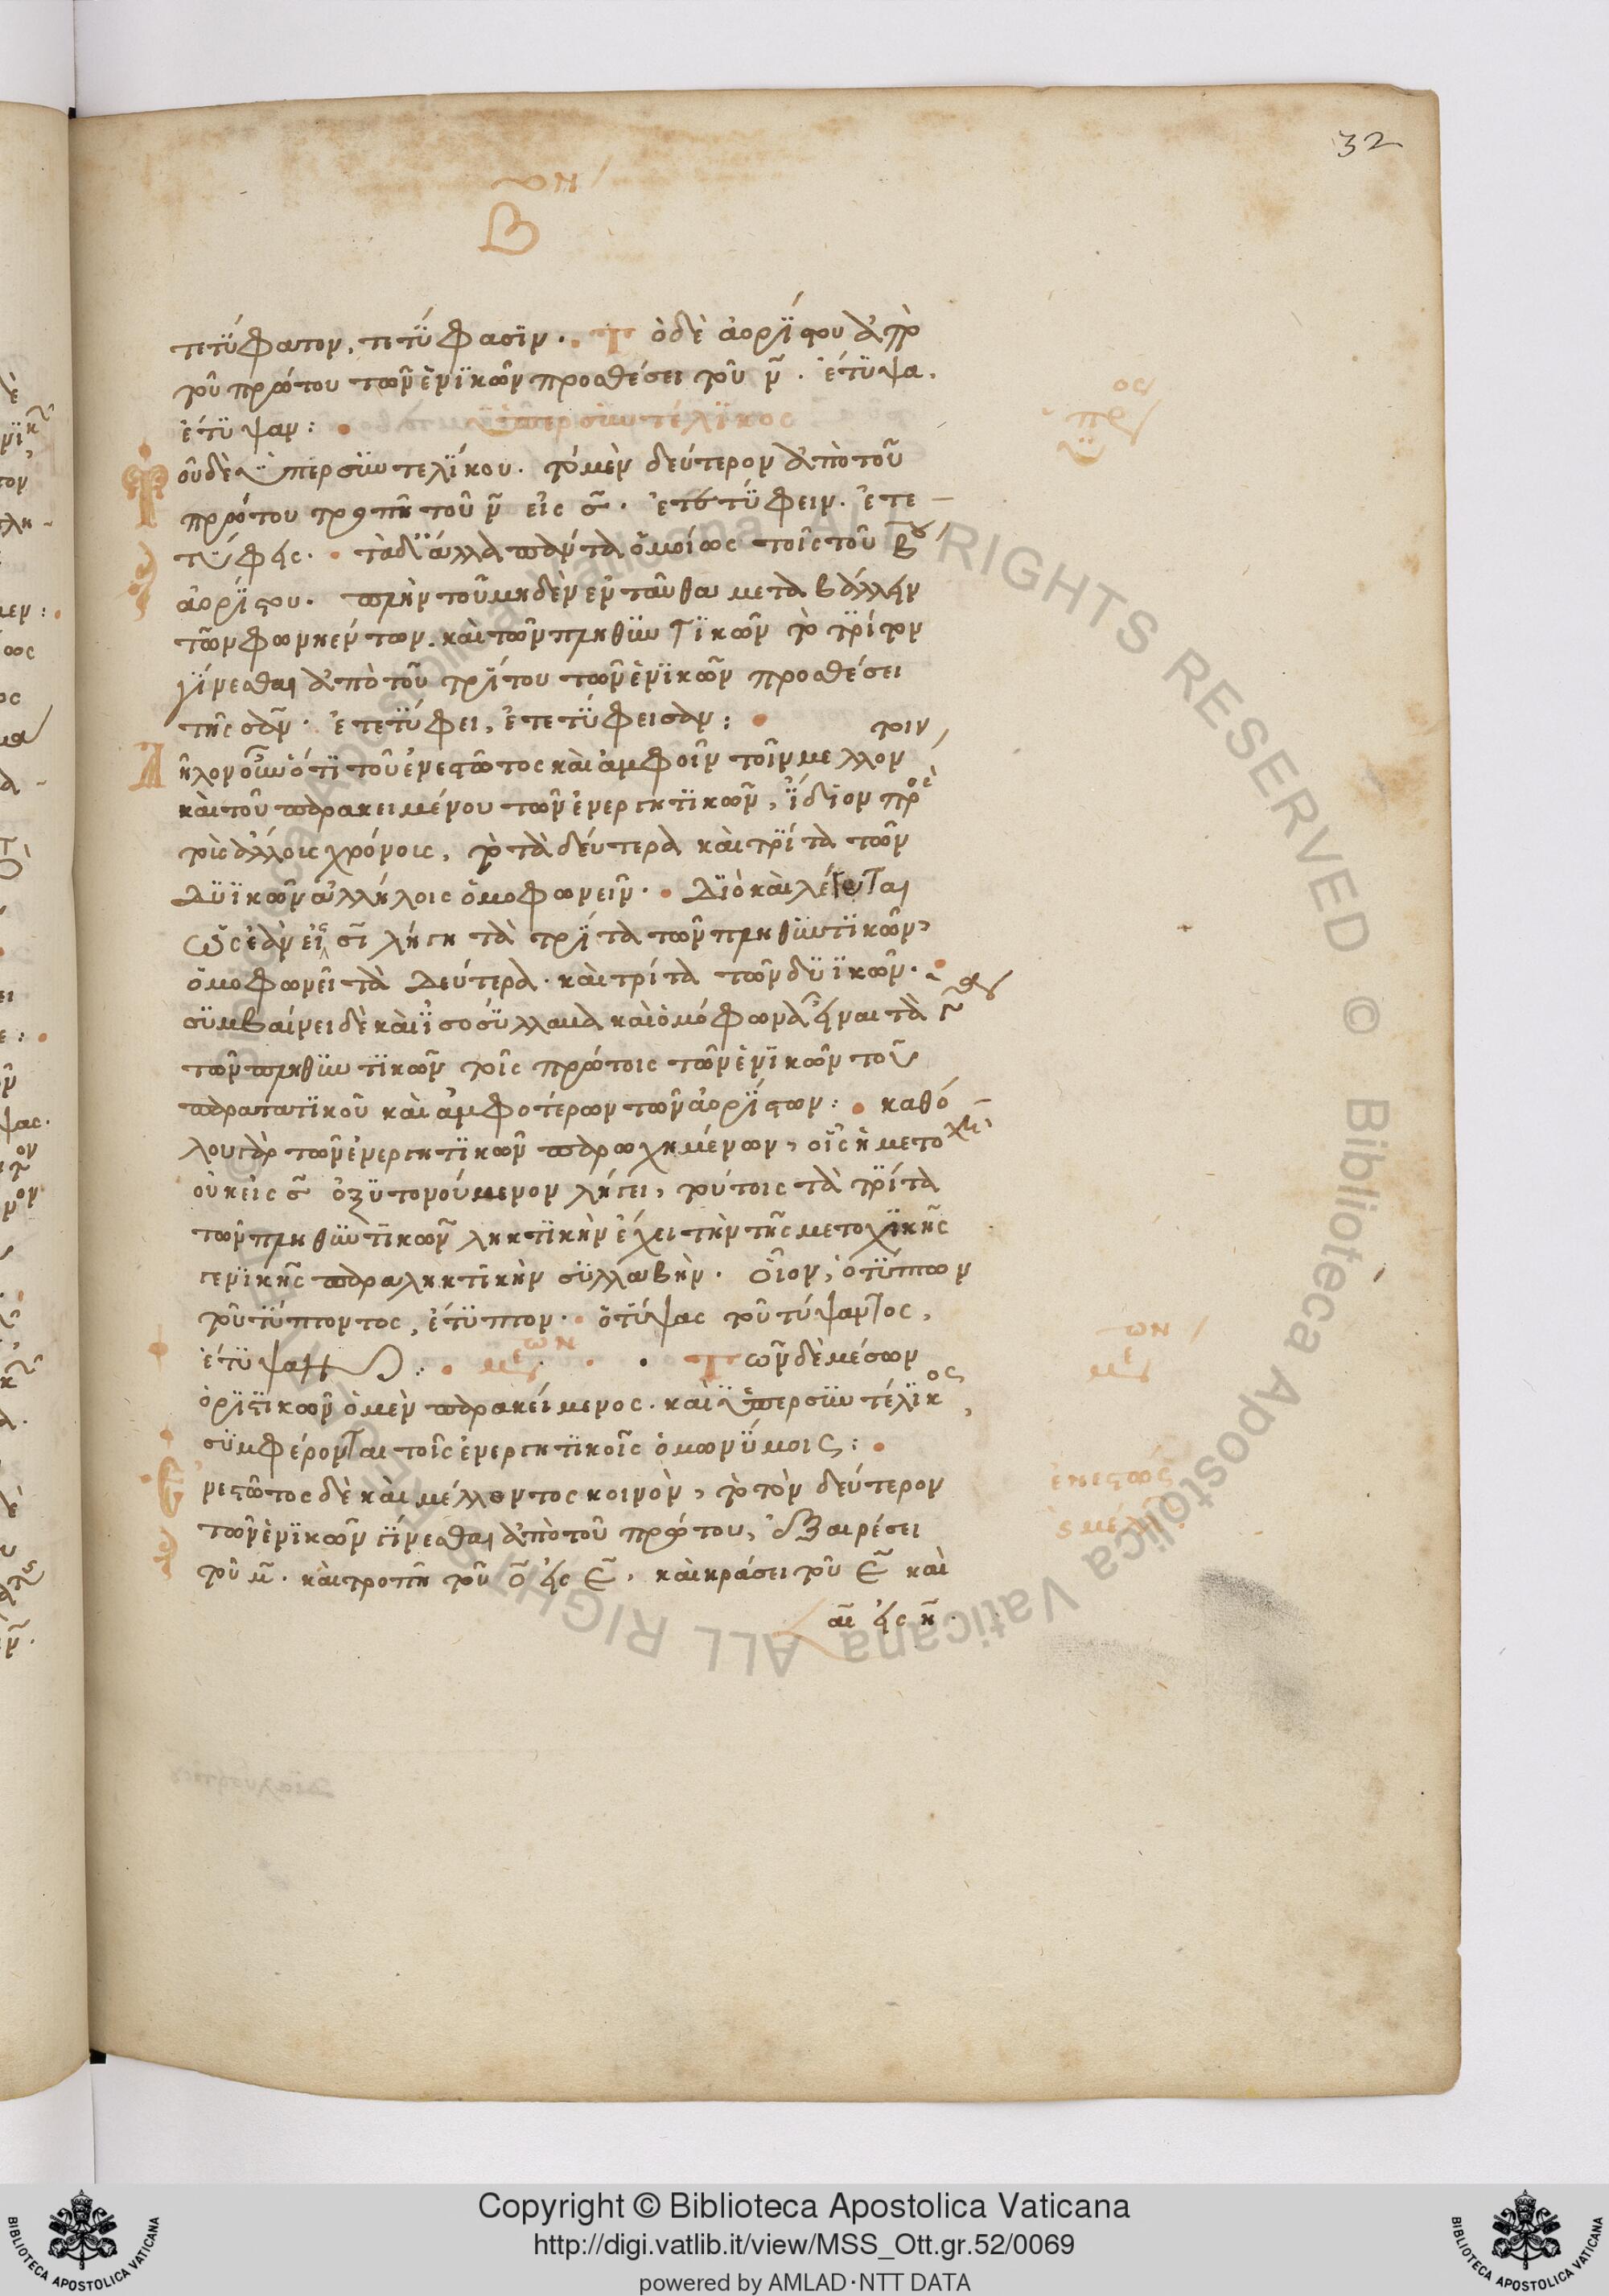 32
τῶν
β
τετύφατον, τετύφασϊν. Τὸ δὲ ἀορίστου ἀπὸ
τοῦ πρώτου τῶν ἑνϊκῶν προσθέσει τοῦ ν̅. ἔτυψα.
ἔτυψαν:
ὑπερσυντέλϊκος
Τοῦ δὲ ὑπερσυντελίκου. τὸ μὲν δεύτερον ἀπὸ τοῦ
πρώτου τροπῆ τοῦ ν̅ εἰς σ̅. ἐτετύφειν. ἐτε
τύφεις. τὰ δ' ἄλλα πάντα ὁμοίως τοῖς τοῦ β
ἀορίστου. πλὴν τοῦ μηδὲν ἐνταῦθα μεταβάλλειν
τῶν φωνηέντων. καὶ τῶν πληθυντϊκῶν τὸ τρίτον
γίνεσθαι ἀπὸ τοῦ τρίτου τῶν ἑνϊκῶν προσθέσει
τῆς σαν. ἐτετύφει, ἐτετύφεισαν:
τοιν
Δῆλον οὖν ὅτι τοῦ ἐνεστῶτος καὶ ἀμφοῖν τοῖν μελλόν
καὶ τοῦ παρακειμένου τῶν ἐνεργητικῶν, ἴδϊον πρὸ
τοῖς ἄλλοις χρόνοις, τὸ τὰ δεύτερα καὶ τρίτα τῶν
δυϊκῶν ἀλλήλοις ὁμοφωνεῖν. Διὸ καὶ λέγεται
ὡς ἐὰν εἰς σϊ λήγη τὰ τρίτα τῶν πληθυντικῶν,
ὁμοφωνεῖ τὰ δεύτερα. καὶ τρίτα τῶν δυϊκῶν.
συμβαίνει δὲ καὶ ἰσοσύλλαβα καὶ ὁμόφωνα εἶναι τὰ γ̅
τῶν πληθυντικῶν τοῖς πρώτοις τῶν ἑνϊκῶν τοῦ
παρατατϊκοῦ καὶ ἀμφοτέρων τῶν ἀορίστων: καθό
λου γὰρ τῶν ἐνεργητϊκῶν παρωχημένων, οἷς ἡ μετοχὴ
οὐκ εἰς σ̅ ὀξυτονούμενον λήγει, τούτοις τὰ τρίτα
τῶν πληθυντικῶν ληκτϊκὴν ἔχει τὴν τῆς μετοχϊκῆς
γενϊκῆς παραληκτϊκὴν συλλαβήν. οἷον, ὁ τύπτων
τοῦ τύπτοντος, ἔτυπτον. ὁ τύψας τοῦ τύψαντος,
ἔτυψαν:
Τῶν δὲ μέσων
ὁριστικῶν ὁ μὲν παρακείμενος. καὶ ὑπερσυντέλϊκος,
συμφέρονται τοῖς ἐνεργητϊκοῖς ὁμωνύμοις:
Ἐνεστῶτος δὲ καὶ μέλλοντος κοινὸν, τὸ τὸν δεύτερον
τῶν ἑνϊκῶν γίνεσθαι ἀπὸ τοῦ πρώτου, ἐξαιρέσει
τοῦ μ̅. καὶ τροπῆ τοῦ ο̅ εἰς ε̅, καὶ κράσει τοῦ ε̅ καὶ
αι εἰς η̅.
ἐνεστὼς
Copyright © Biblioteca Apostolica Vaticana
http://digi.vatlib.it/view/MSS_Ott.gr.52/0069
powered by AMLAD·NTT DATA
BIBLIOTECA APOSTOLICA VATICANA
BIBLIOTECA APOSTOLICA VATICANA